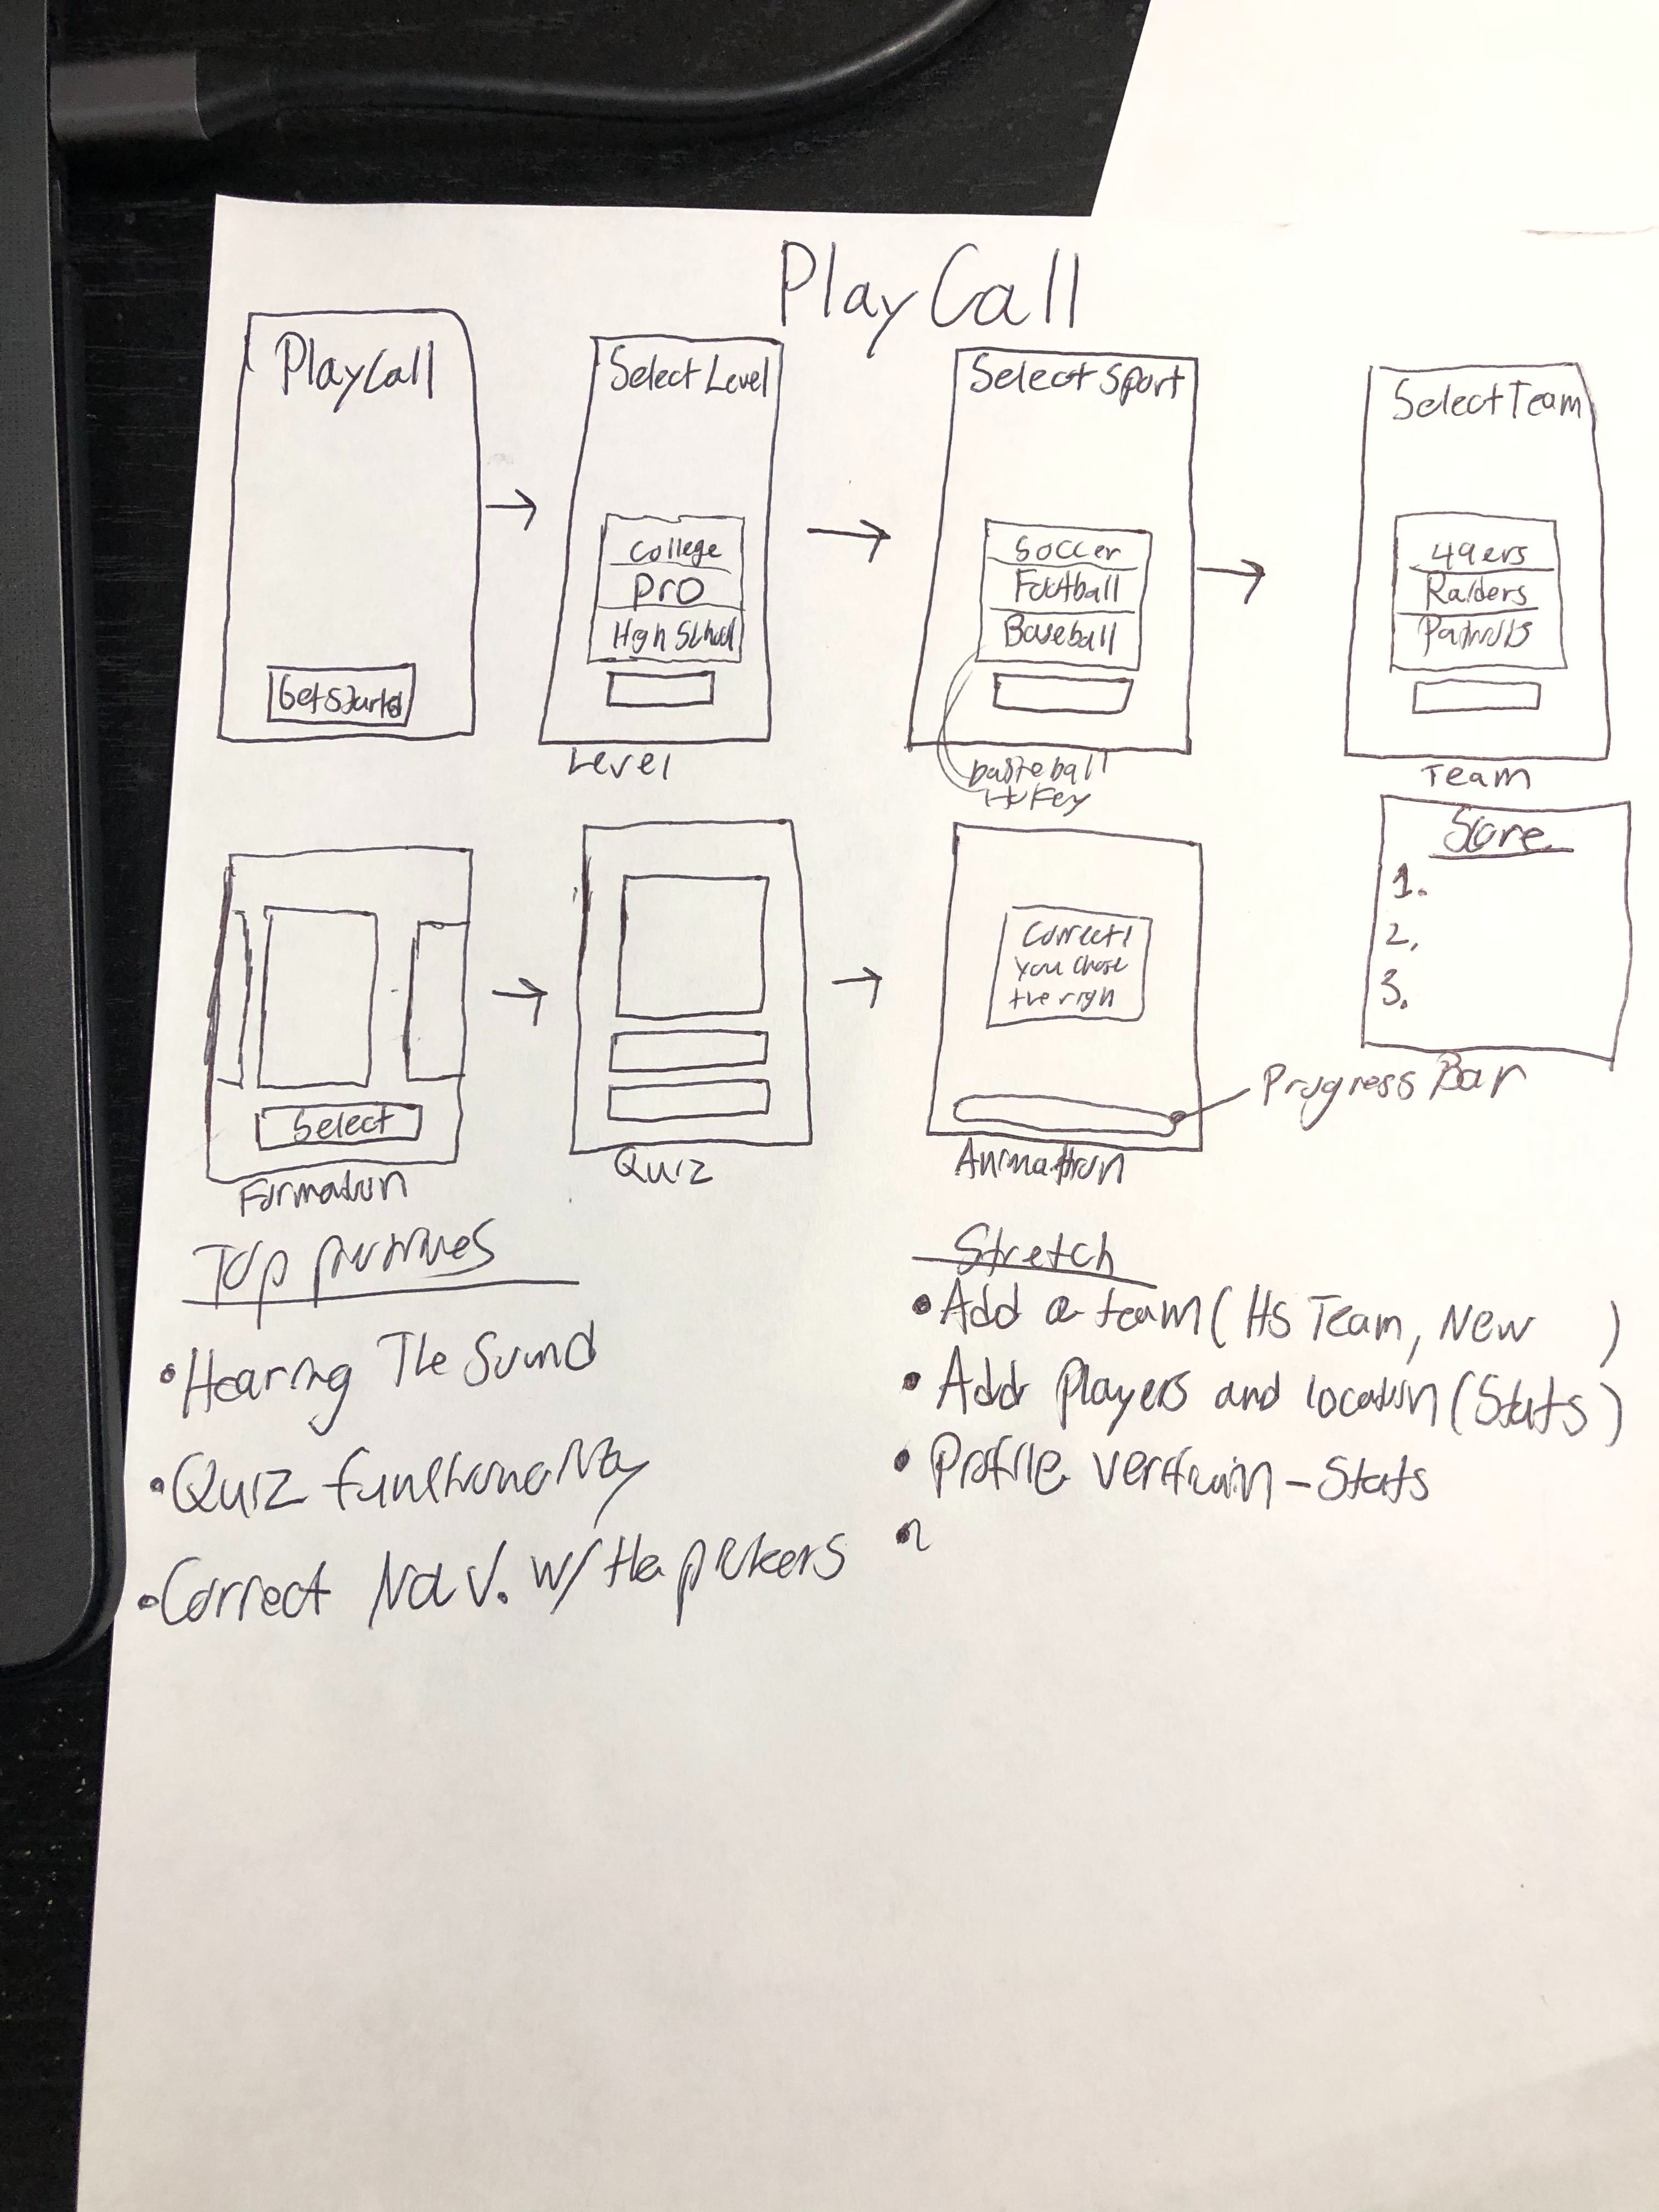 PlayCall
PlayCall
Get Started
Select Level
College
Pro
High School
Level
Select Sport
Soccer
Football
Baseball
Select Team
49ers
Raiders
Team
Select
Formation
Quiz
Correct!
you chose
the righ
Animation
Progress Bar
Score
1.
2.
3.
Top
• Hearing The Sound
• Quiz functionality
• Correct Nav. w/ the pickers
Stretch
• Add a team (HS Team, New )
• Add players and location (Stats)
• Profile - Stats
•